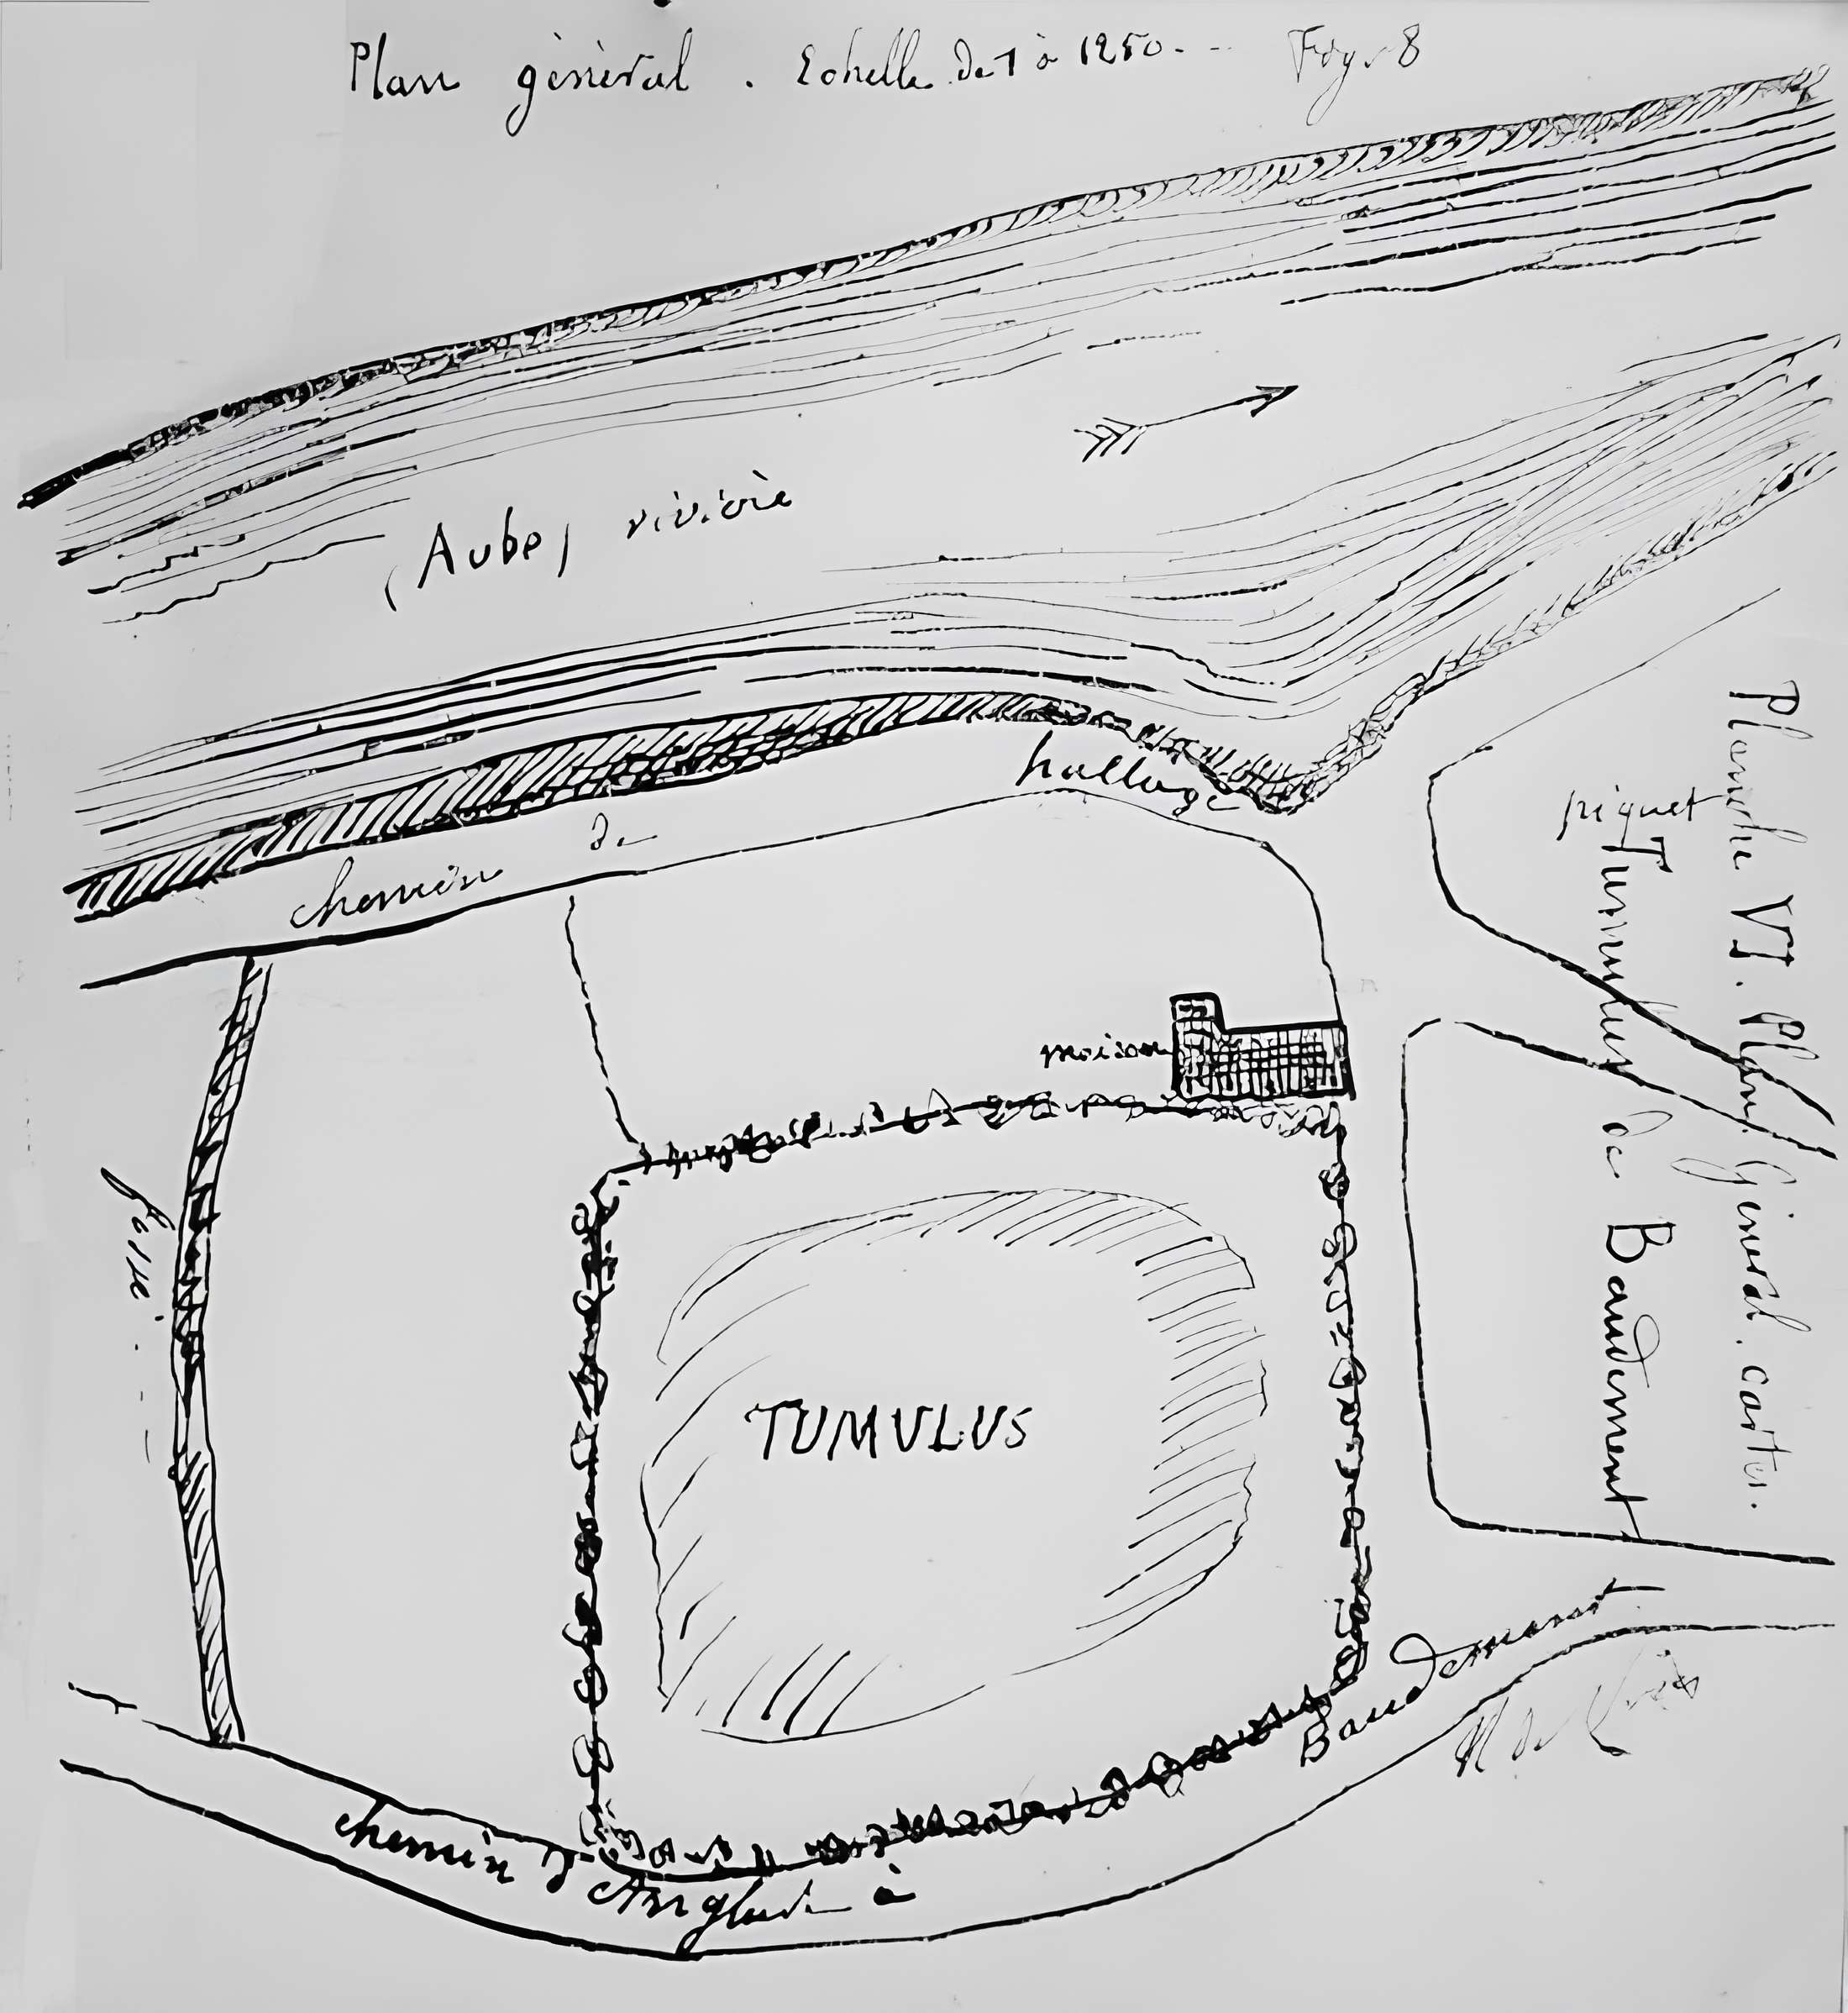 Plan général. Echelle de 1 à 1250. Fig. 8
(Aube) rivière
chemin de hallage
piquet
Planche VI. Plan Général. cartes.
Tumulus de Baudement
maison
fossé
TUMULUS
chemin d'Anglure à Baudement